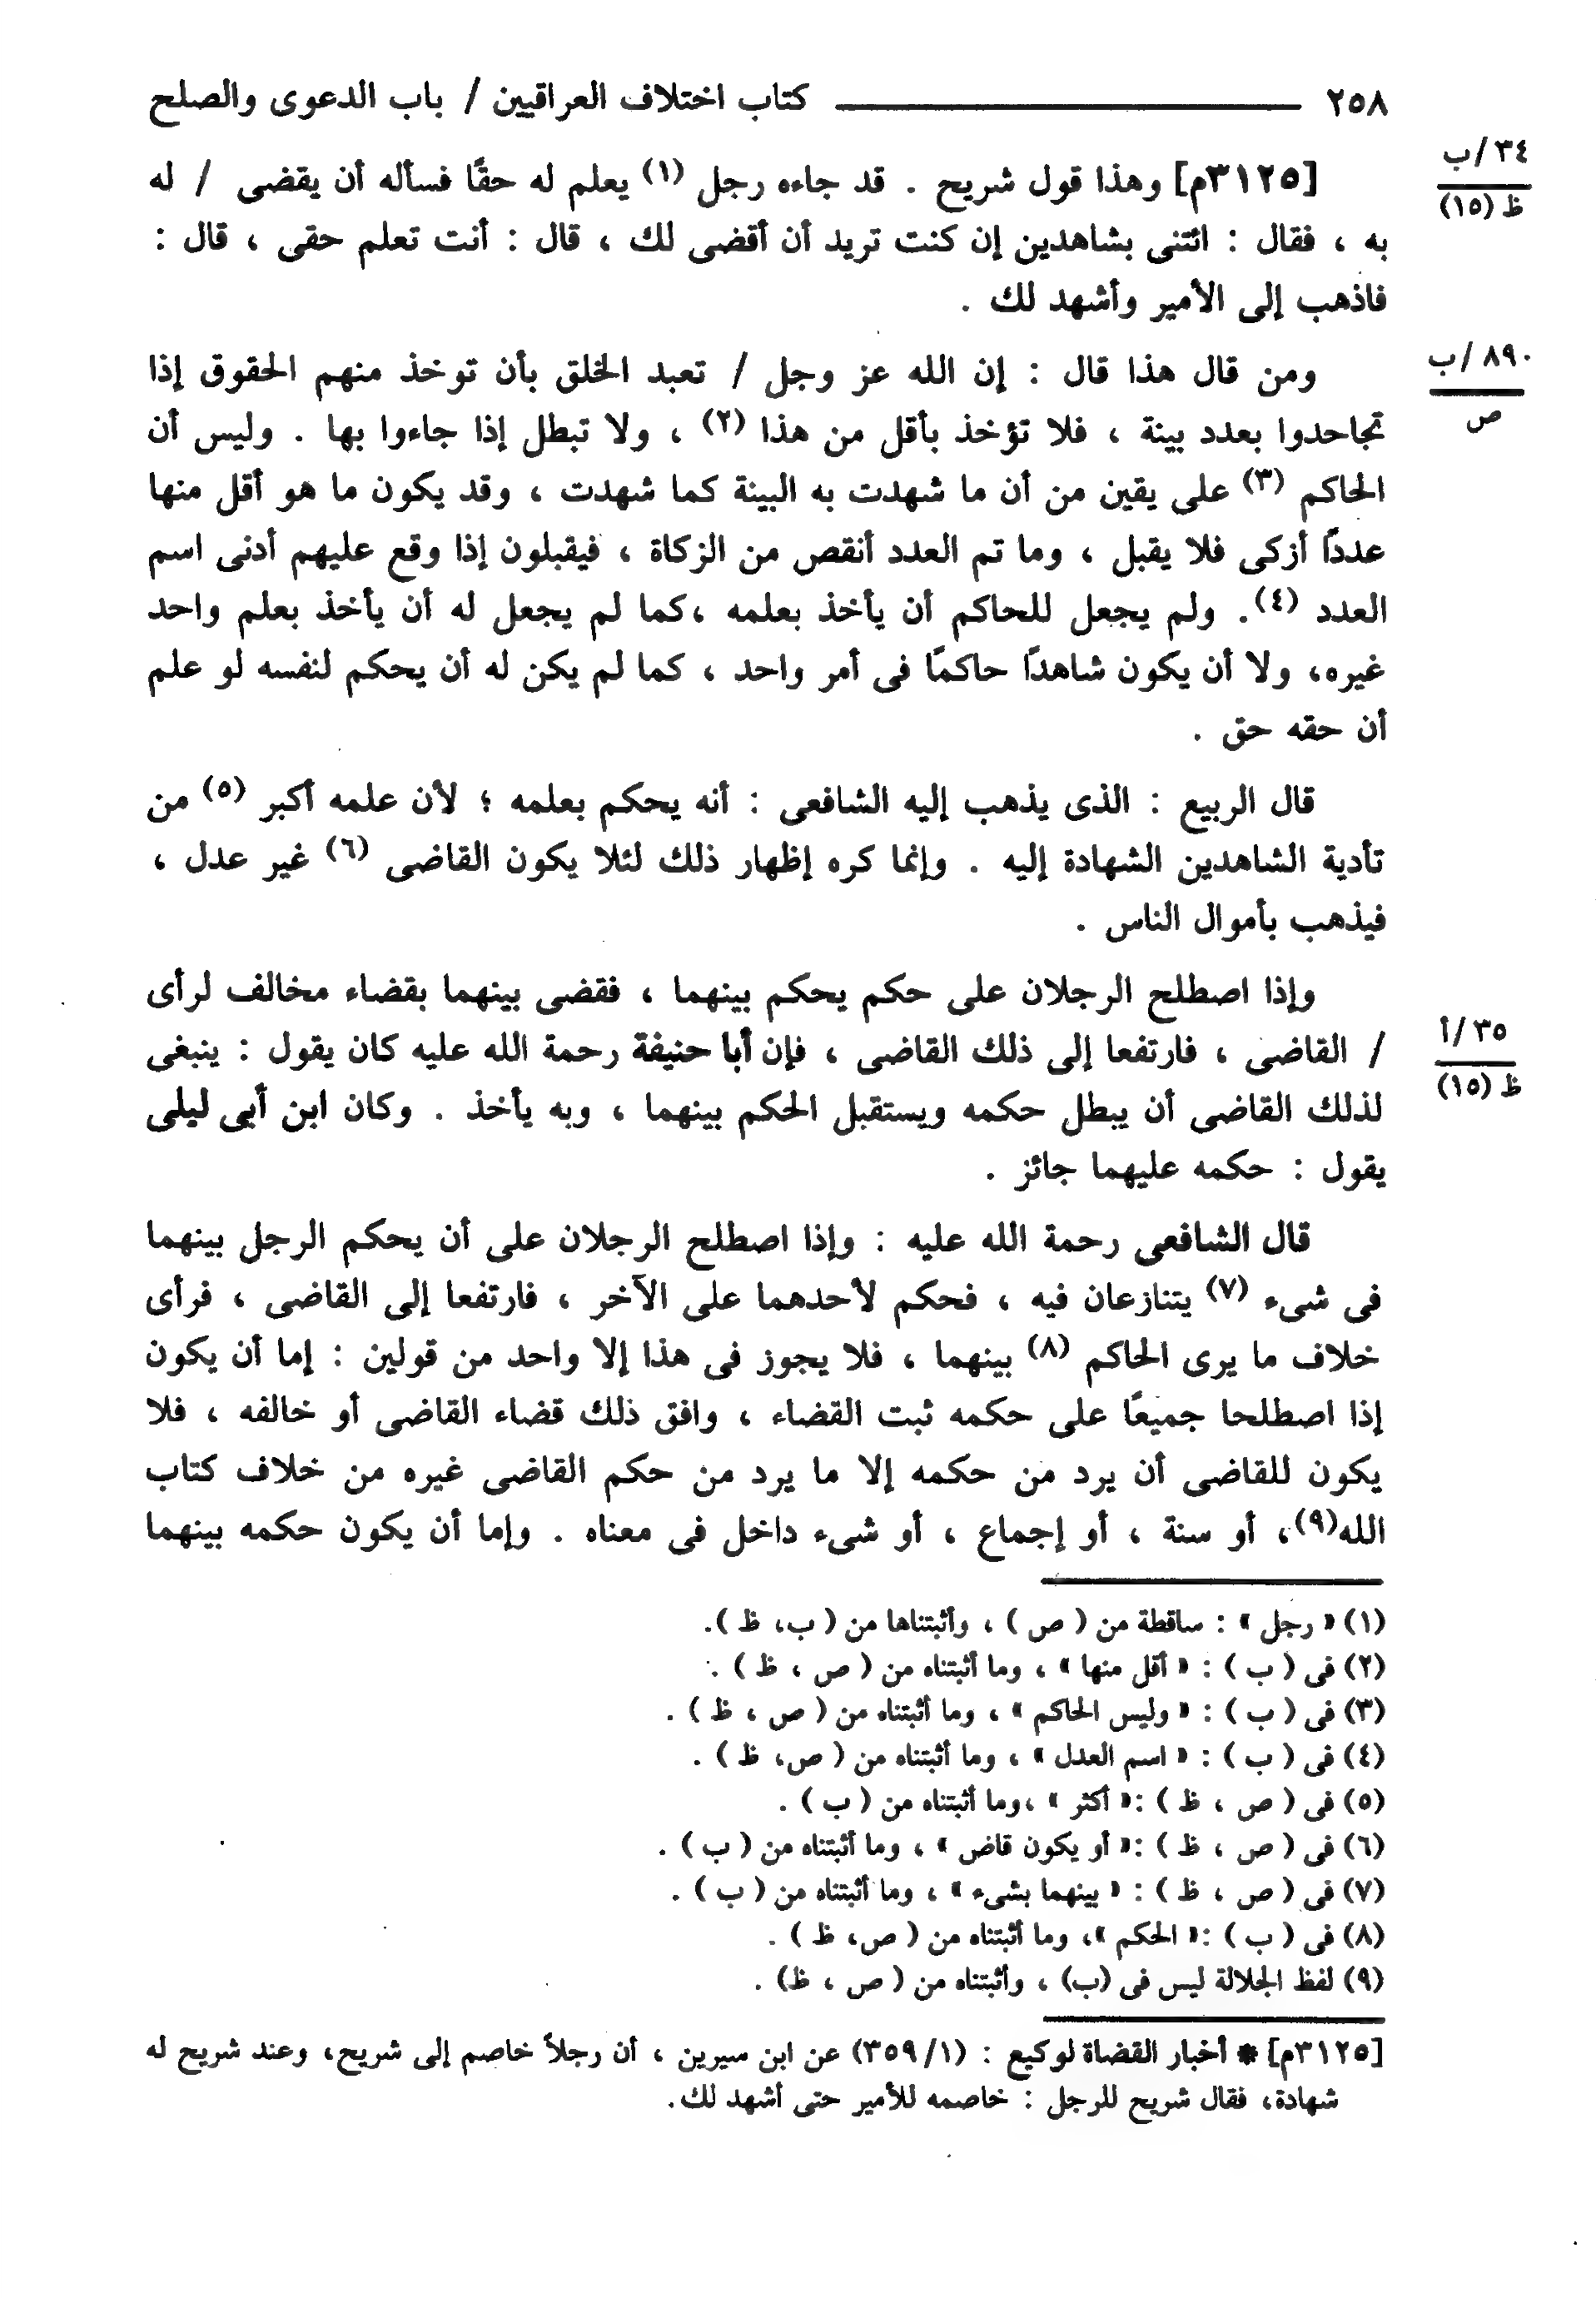 ٢٥٨ ــــــــــــــــ كتاب اختلاف العراقيين / باب الدعوى والصلح
٣٤ /ب
ظ (١٥)
[٣١٢٥م] وهذا قول شريح . قد جاءه رجل (١) يعلم له حقًا فسأله أن يقضى / له
به ، فقال : ائتنى بشاهدين إن كنت تريد أن أقضى لك ، قال : أنت تعلم حقى ، قال :
فاذهب إلى الأمير وأشهد لك .
٨٩٠ /ب
ص
ومن قال هذا قال : إن الله عز وجل / تعبد الخلق بأن توخذ منهم الحقوق إذا
تجاحدوا بعدد بينة ، فلا تؤخذ بأقل من هذا (٢) ، ولا تبطل إذا جاءوا بها . وليس أن
الحاكم (٣) على يقين من أن ما شهدت به البينة كما شهدت ، وقد يكون ما هو أقل منها
عددًا أزكى فلا يقبل ، وما تم العدد أنقص من الزكاة ، فيقبلون إذا وقع عليهم أدنى اسم
العدد (٤). ولم يجعل للحاكم أن يأخذ بعلمه ،كما لم يجعل له أن يأخذ بعلم واحد
غيره، ولا أن يكون شاهدًا حاكمًا فى أمر واحد ، كما لم يكن له أن يحكم لنفسه لو علم
أن حقه حق .
قال الربيع : الذى يذهب إليه الشافعى : أنه يحكم بعلمه ؛ لأن علمه أكبر (٥) من
تأدية الشاهدين الشهادة إليه . وإنما كره إظهار ذلك لئلا يكون القاضى (٦) غير عدل ،
فيذهب بأموال الناس .
وإذا اصطلح الرجلان على حكم يحكم بينهما ، فقضى بينهما بقضاء مخالف لرأى
٣٥ /أ
ظ (١٥)
/ القاضى ، فارتفعا إلى ذلك القاضى ، فإن أبا حنيفة رحمة الله عليه كان يقول : ينبغى
لذلك القاضى أن يبطل حكمه ويستقبل الحكم بينهما ، وبه يأخذ . وكان ابن أبى ليلى
يقول : حكمه عليهما جائز .
قال الشافعى رحمة الله عليه : وإذا اصطلح الرجلان على أن يحكم الرجل بينهما
فى شىء (٧) يتنازعان فيه ، فحكم لأحدهما على الآخر ، فارتفعا إلى القاضى ، فرأى
خلاف ما يرى الحاكم (٨) بينهما ، فلا يجوز فى هذا إلا واحد من قولين : إما أن يكون
إذا اصطلحا جميعًا على حكمه ثبت القضاء ، وافق ذلك قضاء القاضى أو خالفه ، فلا
يكون للقاضى أن يرد من حكمه إلا ما يرد من حكم القاضى غيره من خلاف كتاب
الله(٩)، أو سنة ، أو إجماع ، أو شىء داخل فى معناه . وإما أن يكون حكمه بينهما
(١) « رجل » : ساقطة من ( ص ) ، وأثبتناها من ( ب، ظ ).
(٢) فى ( ب ) : « أقل منها » ، وما أثبتناه من ( ص ، ظ ) .
(٣) فى ( ب ) : « وليس الحاكم » ، وما أثبتناه من ( ص ، ظ ) .
(٤) فى ( ب ) : « اسم العدل » ، وما أثبتناه من ( ص، ظ ) .
(٥) فى ( ص ، ظ ) :« أكثر » ،وما أثبتناه من ( ب ) .
(٦) فى ( ص ، ظ ) :« أو يكون قاض » ، وما أثبتناه من ( ب ) .
(٧) فى ( ص ، ظ ) : « بينهما بشىء » ، وما أثبتناه من ( ب ) .
(٨) فى ( ب ) :« الحكم »، وما أثبتناه من ( ص، ظ ) .
(٩) لفظ الجلالة ليس فى (ب) ، وأثبتناه من ( ص ، ظ) .
[٣١٢٥م] * أخبار القضاة لوكيع : (١/ ٣٥٩) عن ابن سيرين ، أن رجلاً خاصم إلى شريح، وعند شريح له
شهادة، فقال شريح للرجل : خاصمه للأمير حتى أشهد لك.